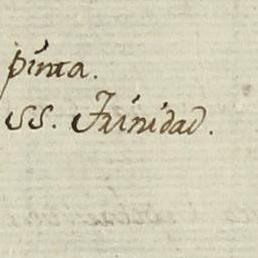 pinta.
SS. Trinidad.